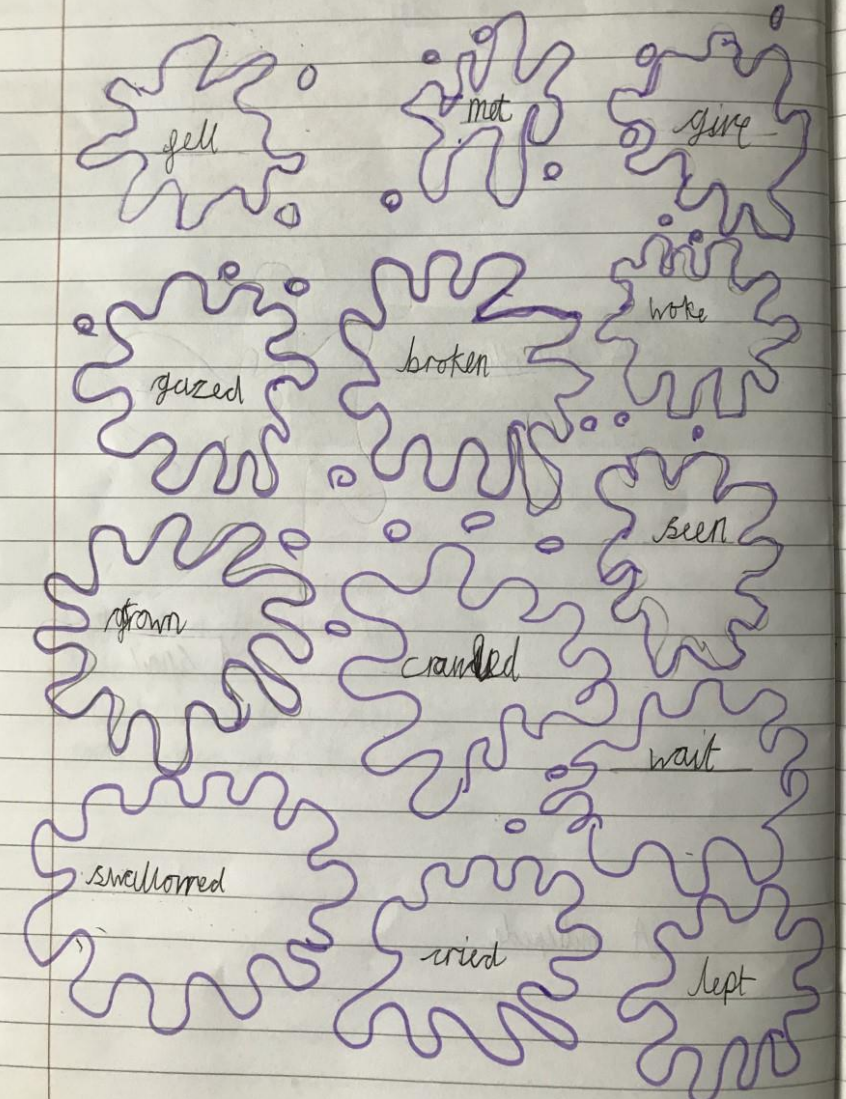 fell
met
give
gazed
broken
woke
seen
grown
crawled
wait
swallowed
cried
lept